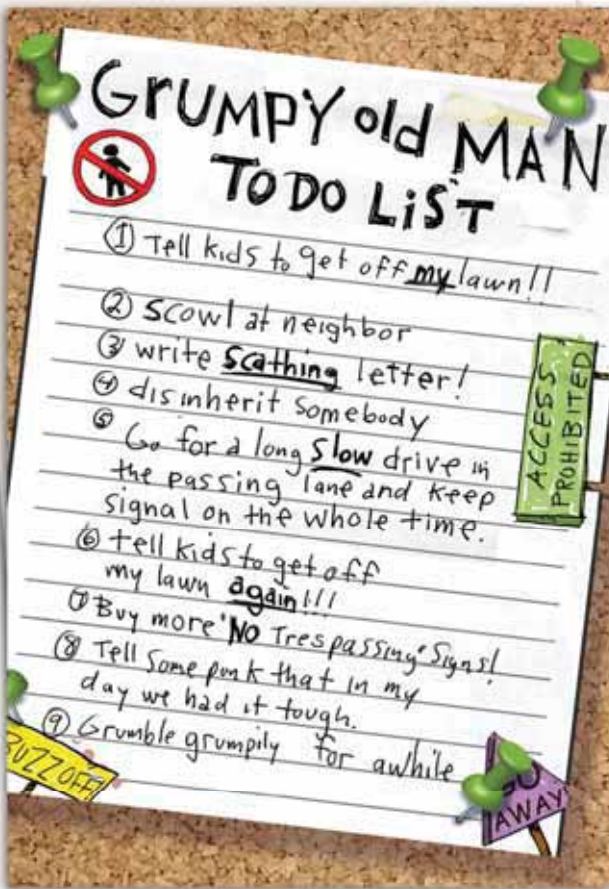 GRUMPY old MAN
TO DO LiST
① Tell kids to get off my lawn!!
② Scowl at neighbor
③ write scathing letter!
④ disinherit somebody
⑤ Go for a long slow drive in
the passing lane and keep
signal on the whole time.
⑥ tell kids to get off
my lawn again!!!
⑦ Buy more "NO Trespassing" Signs!
⑧ Tell Some punk that in my
day we had it tough.
⑨ Grumble grumpily for awhile
ACCESS
PROHIBITED
BUZZ OFF!
GO
AWAY!